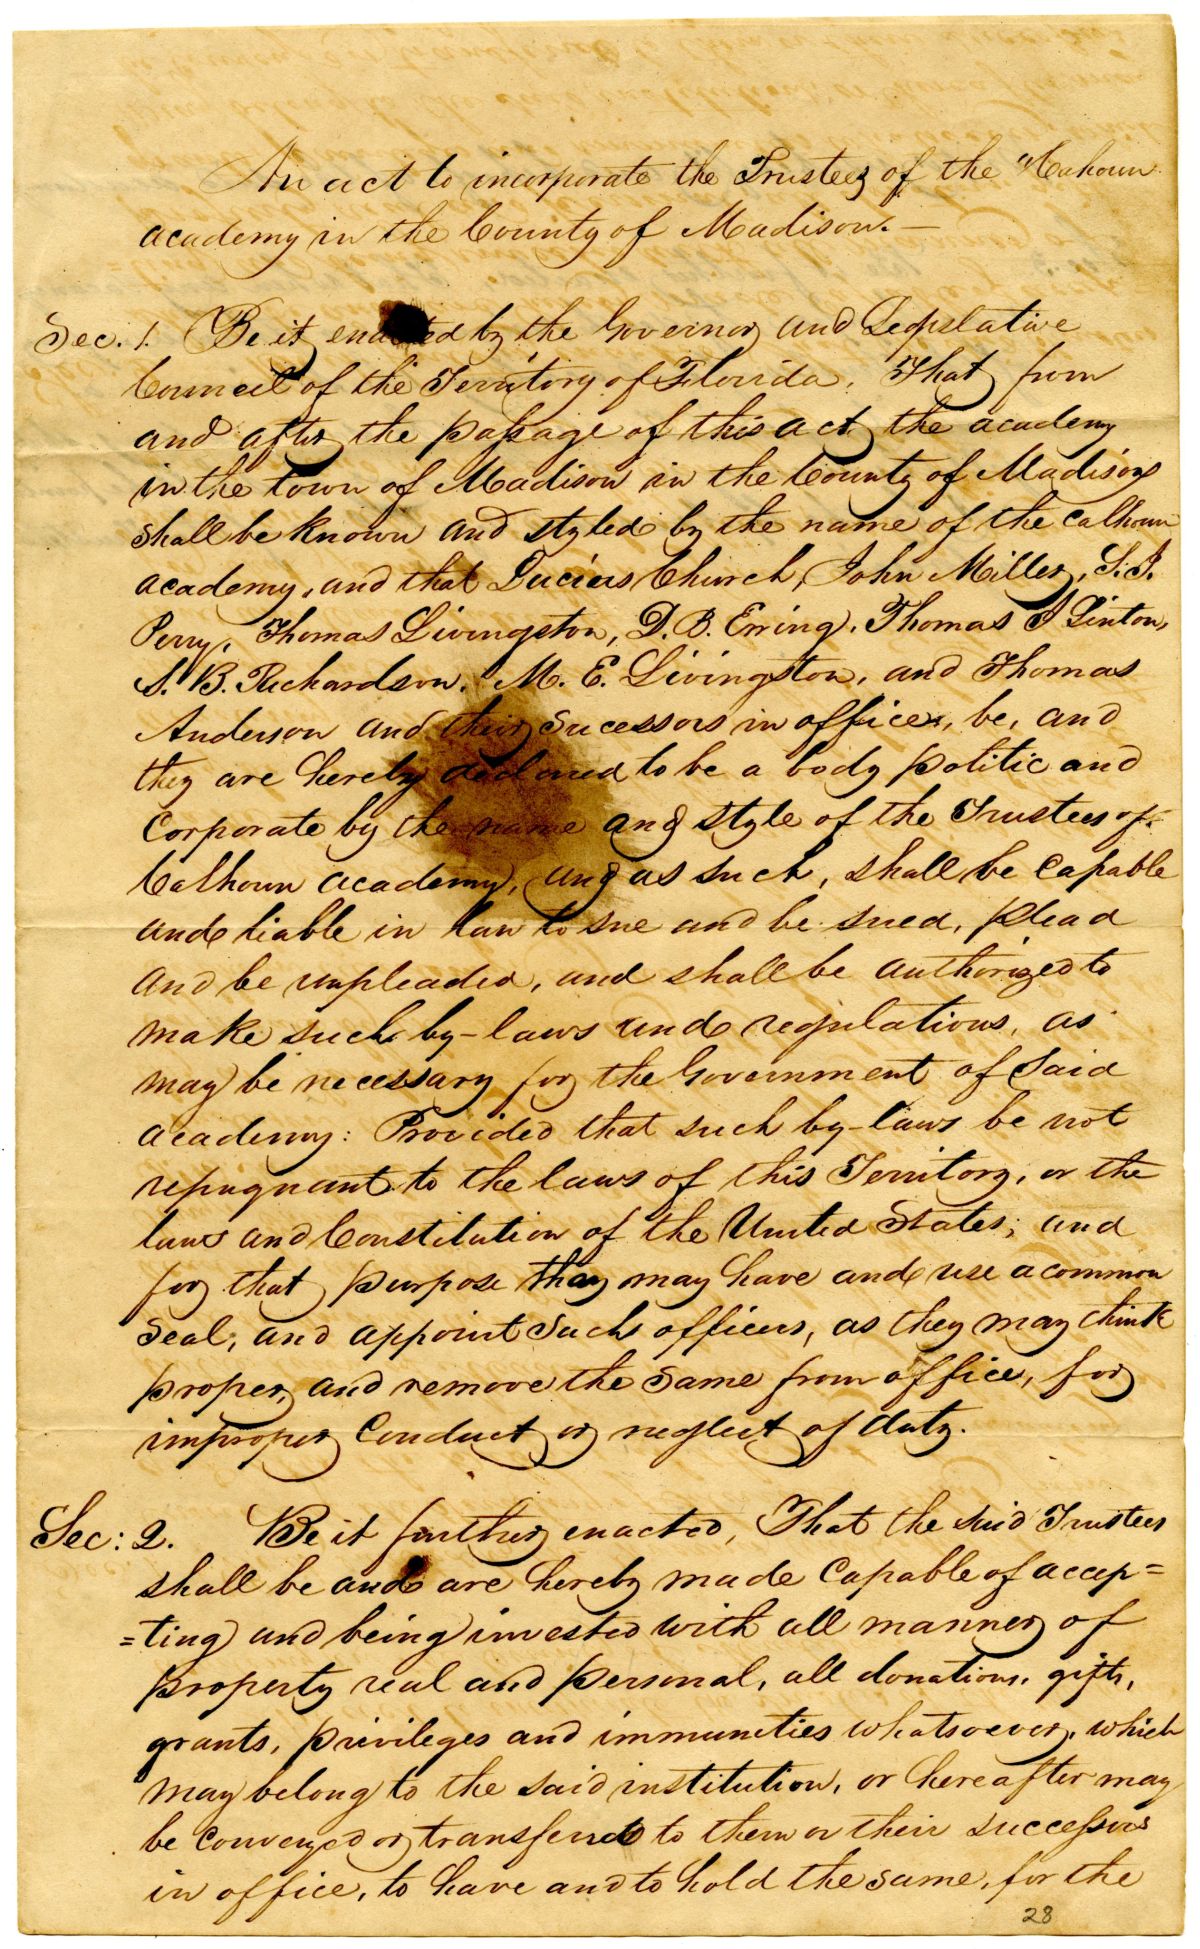 An act to incorporate the Trustees of the "Calhoun
academy in the County of Madison.—
Sec. 1. Be it enacted by the Governor and Legislative
Council of the Territory of Florida. That from
and after the passage of this act the academy
in the town of Madison in the County of Madison
shall be known and styled by the name of the Calhoun
academy, and that Lucius Church, John Miller, S. J.
Perry, Thomas Livingston, D. B. Erring, Thomas J Linton,
S. B. Richardson, M. E. Livingston, and Thomas
Anderson and their Sucessors in office, be, and
they are hereby declared to be a body politic and
Corporate by the name and style of the Trustees of
Calhoun academy, and as such, shall be Capable
and liable in law to sue and be sued, plead
and be impleaded, and shall be authorized to
make such by-laws and regulations, as
may be necessary for the Government of Said
academy: Provided that such by-laws be not
repugnant to the laws of this Territory, or the
laws and Constitution of the United States; and
for that purpose they may have and use a common
Seal, and appoint Such officers, as they may think
proper, and remove the Same from office, for
improper Conduct or neglect of duty.
Sec: 2. Be it further enacted, That the said Trustees
shall be and are hereby made Capable of accep=
=ting and being invested with all manner of
property real and personal, all donations, gifts,
grants, privileges and immuneties whatsoever, which
may belong to the said institution, or hereafter may
be Conveyed or transfered to them or their successors
in office, to have and to hold the same, for the
28